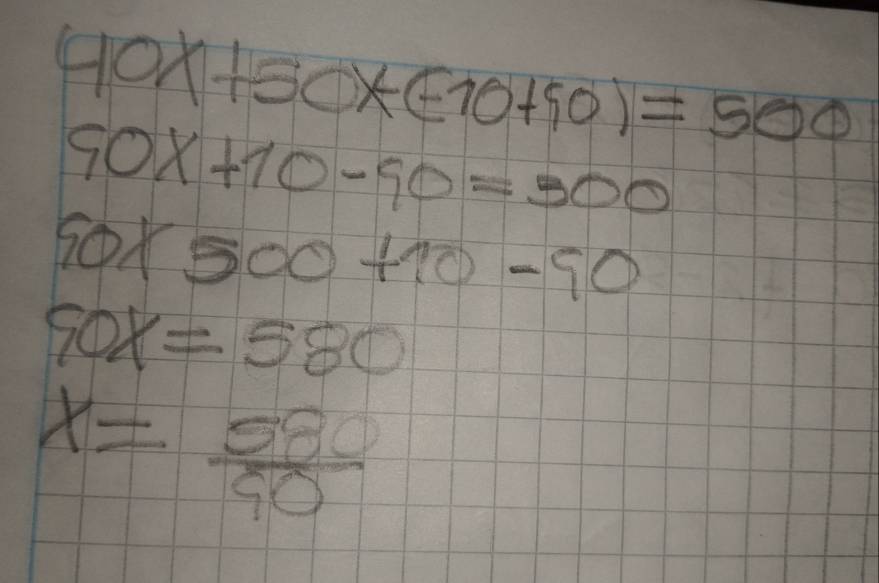 40x+50x-(-10+90)=500
90x+10-90=500
90x 500+10-90
90x=580
x= 580/90